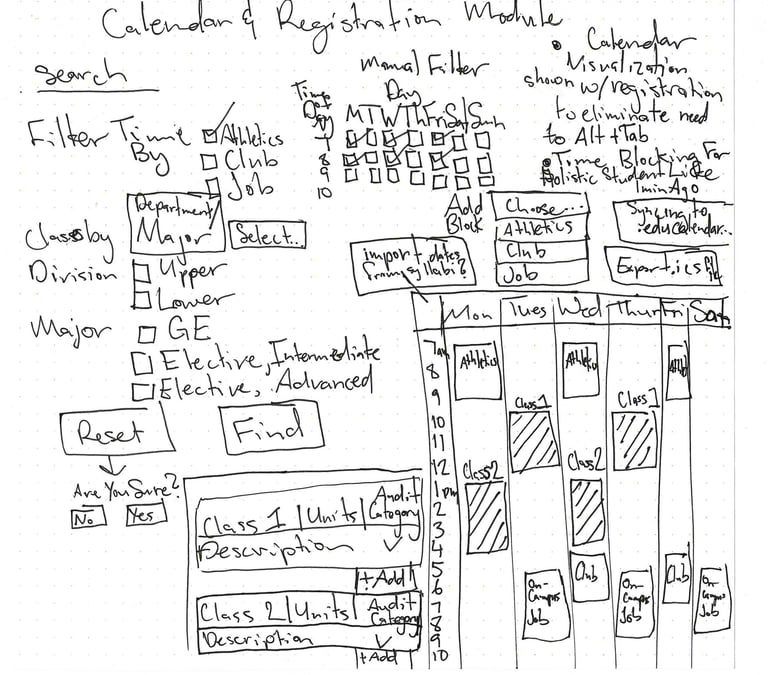 Calendar & Registration Module
Search
Filter Time By
Athletics
Club
Job
Manual Filter
Time of Day
Day
M T W Th Fri Sat Sun
7
8
9
10
• Calendar
Visualization
shown w/registration
to eliminate need
to Alt+Tab
• Time Blocking For
Holistic Student Life
Add Block
Choose...
Athletics
Club
Job
Syncing to
.edu calendar..
Export .ics file
import dates
from syllabi?
Class by
Department/
Major
Select...
Division
Upper
Lower
Major
GE
Elective, Intermediate
Elective, Advanced
Reset
Find
Are You Sure?
No
Yes
Class 1 | Units | Audit Category
Description
+Add
Class 2 | Units | Audit Category
Description
+Add
Mon Tues Wed Thur Fri Sat
7am
8
9
10
11
12
1pm
2
3
4
5
6
7
8
9
10
Athletics
Athletic
Athl
Class 1
Class 1
Class 2
Class 2
Club
Club
On-Campus Job
On-Campus Job
On-Campus Job